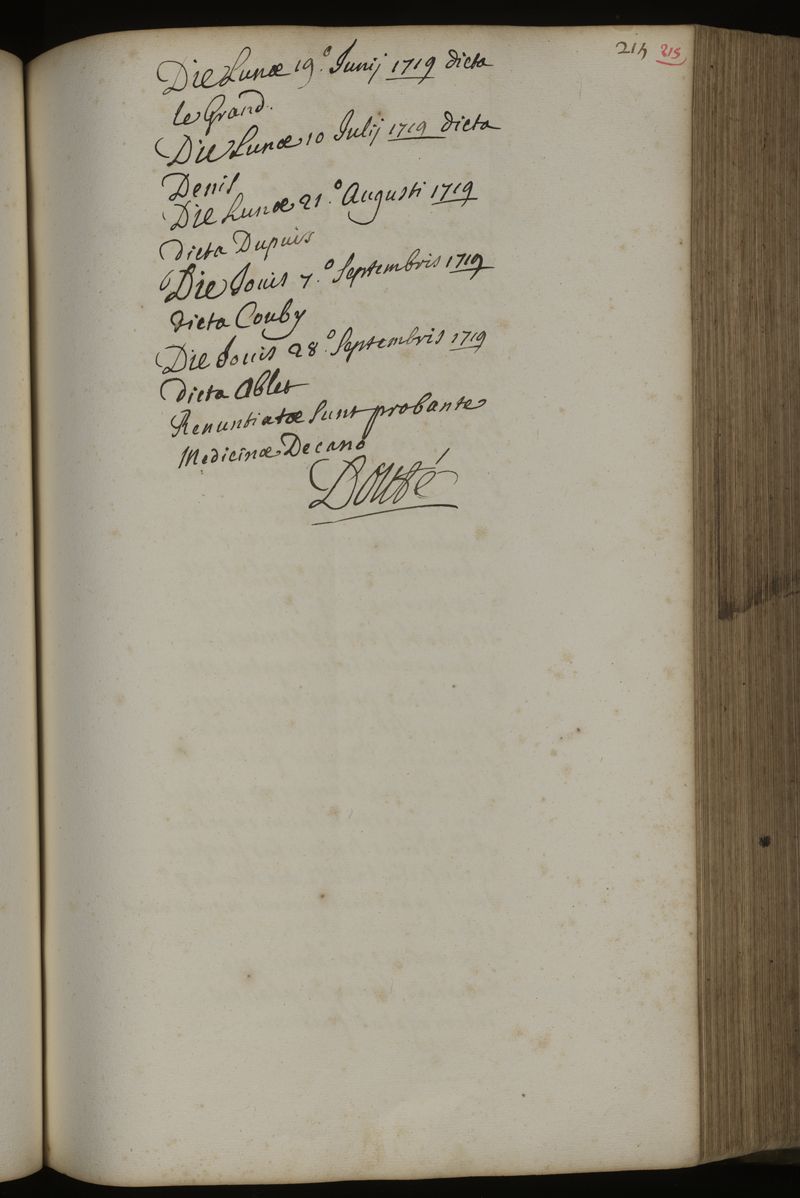 214 215
Die Lunæ 19.° Junij 1719 dicta
le Grand.
Die Lunæ 10 Julij 1719 dicta
Denis
Die Lunæ 21.° Augusti 1719
dicta Dupuis
Die Jouis 7.° Septembris 1719
dicta Couby
Die Jouis 28.° Septembris 1719
dicta Ablet
Renuntiatæ sunt probante
Medicinæ Decano
Douté